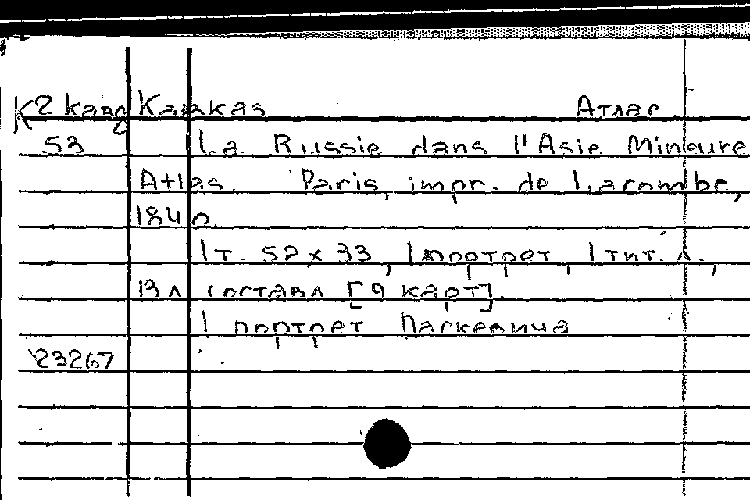 К2 каво Кавказ Атлас
53 La Russie dans l'Asie Mineure
Atlas Paris, impr. de Lacombe,
1840
1 т. 52 x 33, 1 портрет, 1 тит. л.,
13 л состава [9 карт].
1 портрет Паскевича
23267